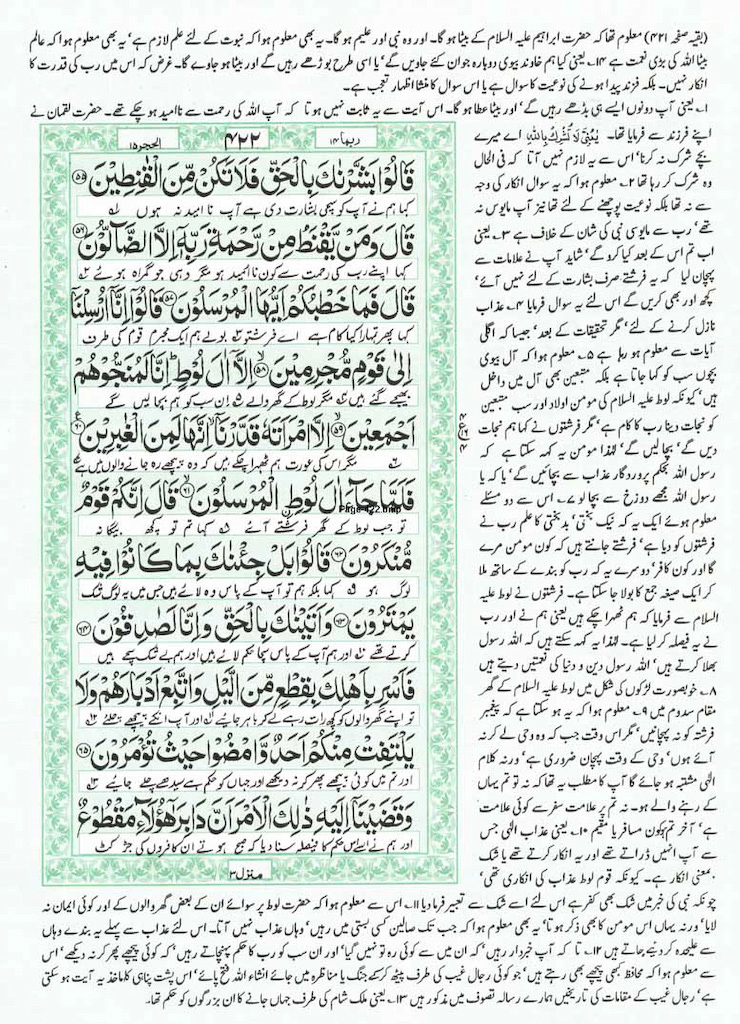 (بقیہ صفحہ ۴۲۱) معلوم تھا کہ حضرت ابراہیم علیہ السلام کے بیٹا ہو گا۔ اور وہ نبی اور علیم ہو گا۔ یہ بھی معلوم ہوا کہ نبوت کے لئے علم لازم ہے' یہ بھی معلوم ہوا کہ عالم
بیٹا اللہ کی بڑی نعمت ہے ۱۴۔ یعنی کیا ہم خاوند بیوی دوبارہ جوان کئے جاویں گے' یا اسی طرح بوڑھے رہیں گے اور بیٹا ہو جاوے گا۔ غرض کہ اس میں رب کی قدرت کا
انکار نہیں۔ بلکہ فرزند پیدا ہونے کی نوعیت کا سوال ہے یا اس سوال کا منشا اظہار تعجب ہے۔
۱۔ یعنی آپ دونوں ایسے ہی بڈھے رہیں گے' اور بیٹا عطا ہو گا۔ اس آیت سے یہ ثابت نہیں ہوتا کہ آپ اللہ کی رحمت سے ناامید ہو چکے تھے۔ حضرت لقمان نے
ربما ۱۴
۴۲۲
الحجر ۱۵
قَالُوْا بَشَّرْنٰكَ بِالْحَقِّ فَلَا تَكُنْ مِّنَ الْقٰنِطِيْنَ ۵۵
کہا ہم نے آپ کو سچی بشارت دی ہے آپ نا امید نہ ہوں
قَالَ وَمَنْ يَّقْنَطُ مِنْ رَّحْمَةِ رَبِّهٖٓ اِلَّا الضَّآلُّوْنَ ۵۶
کہا اپنے رب کی رحمت سے کون ناامید ہو مگر وہی جو گمراہ ہوئے
قَالَ فَمَا خَطْبُكُمْ اَيُّهَا الْمُرْسَلُوْنَ ۵۷ قَالُوْٓا اِنَّآ اُرْسِلْنَآ
کہا پھر تمہارا کیا کام ہے اے فرشتو بولے ہم ایک مجرم قوم کی طرف
اِلٰى قَوْمٍ مُّجْرِمِيْنَ ۵۸ اِلَّآ اٰلَ لُوْطٍ اِنَّا لَمُنَجُّوْهُمْ
بھیجے گئے ہیں مگر لوط کے گھر والے ان سب کو ہم بچا لیں گے
اَجْمَعِيْنَ ۵۹ اِلَّا امْرَاَتَهٗ قَدَّرْنَآ اِنَّهَا لَمِنَ الْغٰبِرِيْنَ ۶۰
مگر اس کی عورت ہم ٹھہرا چکے ہیں کہ وہ پیچھے رہ جانے والوں میں ہے
فَلَمَّا جَآءَ اٰلَ لُوْطِ ۨالْمُرْسَلُوْنَ ۶۱ قَالَ اِنَّكُمْ قَوْمٌ
Page-422.bmp
تو جب لوط کے گھر فرشتے آئے کہا تم تو کچھ بیگانہ
مُّنْكَرُوْنَ ۶۲ قَالُوْا بَلْ جِئْنٰكَ بِمَا كَانُوْا فِيْهِ
لوگ ہو کہا بلکہ ہم تو آپ کے پاس وہ لائے ہیں جس میں یہ لوگ شک
يَمْتَرُوْنَ ۶۳ وَاَتَيْنٰكَ بِالْحَقِّ وَاِنَّا لَصٰدِقُوْنَ ۶۴
کرتے تھے اور ہم آپ کے پاس سچا حکم لائے ہیں اور ہم بے شک سچے ہیں
فَاَسْرِ بِاَهْلِكَ بِقِطْعٍ مِّنَ الَّيْلِ وَاتَّبِعْ اَدْبَارَهُمْ وَلَا
تو اپنے گھر والوں کو کچھ رات رہے لے کر باہر جائیے اور آپ انکے پیچھے چلئے
يَلْتَفِتْ مِنْكُمْ اَحَدٌ وَّامْضُوْا حَيْثُ تُؤْمَرُوْنَ ۶۵
اور تم میں کوئی پیچھے پھر کر نہ دیکھے اور جہاں کو حکم ہے سیدھے چلے جائیے
وَقَضَيْنَآ اِلَيْهِ ذٰلِكَ الْاَمْرَ اَنَّ دَابِرَ هٰٓؤُلَآءِ مَقْطُوْعٌ
اور ہم نے اسے اس حکم کا فیصلہ سنا دیا کہ صبح ہوتے ان کافروں کی جڑ کٹ
منزل ۳
اپنے فرزند سے فرمایا تھا۔ يٰبُنَيَّ لَا تُشْرِكْ بِاللّٰهِ اے میرے
بچے شرک نہ کرنا' اس سے یہ لازم نہیں آتا کہ فی الحال
وہ شرک کر رہا تھا ۲۔ معلوم ہوا کہ یہ سوال انکار کی وجہ
سے نہ تھا بلکہ نوعیت پوچھنے کے لئے تھا نیز آپ مایوس نہ
تھے' رب سے مایوسی نبی کی شان کے خلاف ہے ۳۔ یعنی
اب تم اس کے بعد کیا کرو گے' شاید آپ نے علامات سے
پہچان لیا کہ یہ فرشتے صرف بشارت کے لئے نہیں آئے'
کچھ اور بھی کریں گے اس لئے یہ سوال فرمایا ۴۔ عذاب
نازل کرنے کے لئے' مگر تحقیقات کے بعد' جیسا کہ اگلی
آیات سے معلوم ہو رہا ہے ۵۔ معلوم ہوا کہ آل بیوی
بچوں سب کو کہا جاتا ہے بلکہ متبعین بھی آل میں داخل
ہیں' کیونکہ لوط علیہ السلام کی مومن اولاد اور سب متبعین
کو نجات دینا رب کا کام ہے' مگر فرشتوں نے کہا ہم نجات
دیں گے' بچا لیں گے' لہٰذا مومن یہ کہہ سکتا ہے کہ
رسول اللہ بحکم پروردگار عذاب سے بچائیں گے' یا کہ یا
رسول اللہ مجھے دوزخ سے بچا لو ۷۔ اس سے دو مسئلے
معلوم ہوئے ایک یہ کہ نیک بختی' بدبختی کا علم رب نے
فرشتوں کو دیا ہے' فرشتے جانتے ہیں کہ کون مومن مرے
گا اور کون کافر' دوسرے یہ کہ رب کو بندے کے ساتھ ملا
کر ایک صیغہ جمع کا بولا جا سکتا ہے۔ فرشتوں نے لوط علیہ
السلام سے فرمایا کہ ہم ٹھہرا چکے ہیں یعنی ہم نے اور رب
نے یہ فیصلہ کر لیا ہے۔ لہٰذا یہ کہہ سکتے ہیں کہ اللہ رسول
بھلا کرتے ہیں' اللہ رسول دین و دنیا کی نعمتیں دیتے ہیں
۸۔ خوبصورت لڑکوں کی شکل میں لوط علیہ السلام کے گھر
مقام سدوم میں ۹۔ معلوم ہوا کہ یہ ہو سکتا ہے کہ پیغمبر
فرشتہ کو نہ پہچانیں' مگر اس وقت جب کہ وہ وحی لے کر نہ
آئے ہوں' وحی کے وقت پہچان ضروری ہے' ورنہ کلام
الٰہی مشتبہ ہو جائے گا آپ کا مطلب یہ تھا کہ نہ تو تم یہاں
کے رہنے والے ہو۔ نہ تم پر علامت سفر سے کوئی علامت
ہے' آخر تم کون مسافر یا مقیم ۱۰۔ یعنی عذاب الٰہی جس
سے آپ انہیں ڈراتے تھے اور یہ انکار کرتے تھے یا شک
بمعنی انکار ہے۔ کیونکہ قوم لوط عذاب کی انکاری تھی'
چونکہ نبی کی خبر میں شک بھی کفر ہے اس لئے اسے شک سے تعبیر فرما دیا ۱۱۔ اس سے معلوم ہوا کہ حضرت لوط پر سوائے ان کے بعض گھر والوں کے اور کوئی ایمان نہ
لایا' ورنہ یہاں اس مومن کا بھی ذکر ہوتا' یہ بھی معلوم ہوا کہ جب تک صالحین کسی بستی میں رہیں' وہاں عذاب نہیں آتا۔ اس لئے عذاب سے پہلے یہ بندے وہاں
سے علیحدہ کر دیئے جاتے ہیں ۱۲۔ تا کہ آپ خبردار رہیں' کہ ان میں سے کوئی رہ تو نہیں گیا' اور ان سب کو رب کا حکم پہنچاتے رہیں' کہ کوئی پیچھے پھر کر نہ دیکھے' اس
سے معلوم ہوا کہ محافظ کبھی پیچھے بھی رہتے ہیں' جو کوئی رجال غیب کی طرف پیٹھ کر کے جنگ یا مناظرہ میں جائے انشاء اللہ فتح پائے' اس پشت پناہی کا ماخذ یہ آیت ہو سکتی
ہے' رجال غیب کے مقامات کی تاریخیں ہمارے رسالہ تصوف میں مذکور ہیں ۱۳۔ یعنی ملک شام کی طرف جہاں جانے کا ان بزرگوں کو حکم تھا۔